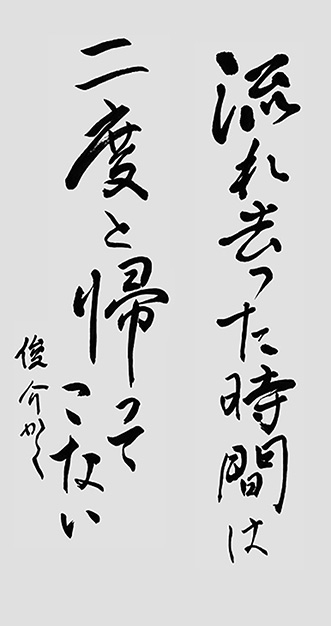 流れ去った時間は
二度と帰って
こない
俊介かく